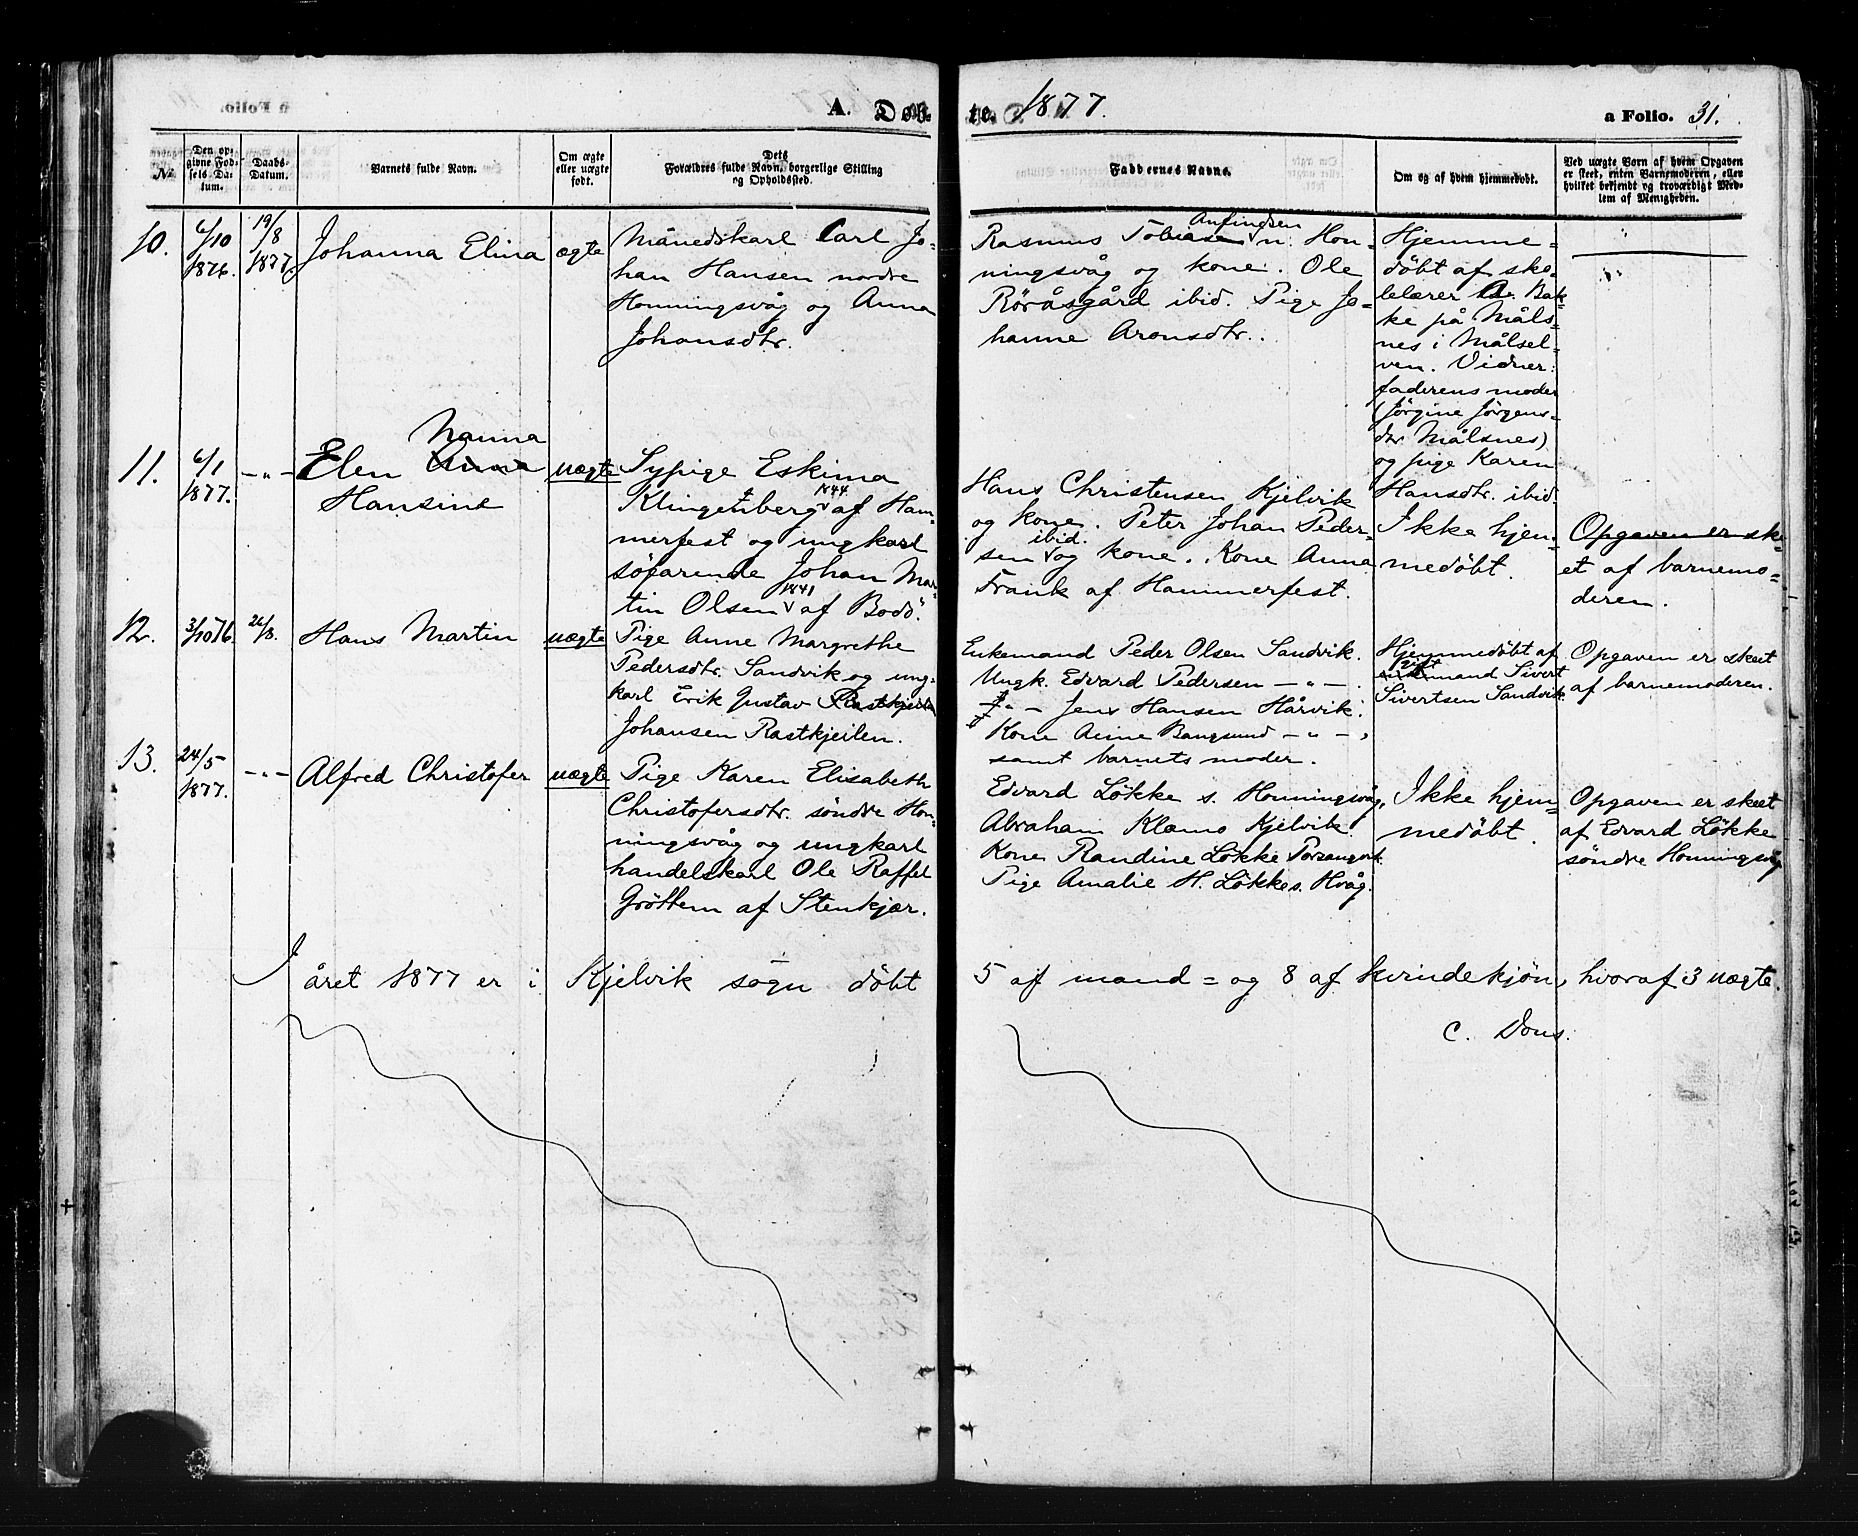 A. Døb-
te. 1877.
a Folio. 31.
№
Den op-
givne Fød-
sels Da-
tum.
Daabs-
Datum.
Barnets fulde Navn.
Om ægte
eller uægte
født.
Dets
Forældres fulde Navn, borgerlige Stilling
og Opholdssted.
Faddernes Navne.
Om og af hvem hjemmedøbt.
Ved uægte Børn af hvem Opgaven
er skeet, enten Barnemoderen, eller
hvilket bekjendt og troværdigt Med-
lem af Menigheden.
10.
6/10
1876.
19/8
1877.
Johanna Elina
ægte
Månedskarl Carl Jo-
han Hansen nordre
Honningsvåg og Anna
Johansdtr.
Anfindsen
Rasmus Tobiasen n. Hon-
ningsvåg og kone. Ole
Röråsgård ibid. Pige Jo-
hanne Aronsdtr.
Hjemme-
döbt af sko-
lelærer A. Bak-
ke på Måls-
nes i Målsel-
ven. Vidner:
faderens moder
(Jörgine Jörgens-
dtr Målsnes)
og pige Karen
Hansdtr. ibid.
11.
6/1
1877.
-"-
Nanna
Elen Anna
Hansine
uægte
Sypige Eskima
Klingenberg 1844 af Ham-
merfest og ungkarl
söfarende Johan Mar-
tin Olsen 1841 af Bodö.
Hans Christensen Kjelvik
og kone. Peter Johan Peder-
sen ibid. og kone. Kone Anna
Frank af Hammerfest.
Ikke hjem-
medöbt.
Opgaven er ske-
et af barnemo-
deren.
12.
3/10 76.
26/8.
Hans Martin
uægte
Pige Anne Margrethe
Pedersdtr. Sandvik og ung-
karl Erik Gustav Rastkjeilen
Johansen Rastkjeilen.
Enkemand Peder Olsen Sandvik.
Ungk. Edvard Pedersen -"-.
-"- Jens Hansen Hårvik.
Kone Anne Bangsund -"-,
samt barnets moder.
Hjemmedöbt af
gift
enkemand Sivert
Sivertsen Sandvik.
Opgaven er skeet
af barnemoderen.
13.
24/5
1877.
-"-
Alfred Christofer
uægte
Pige Karen Elisabeth
Christofersdtr. söndre Hon-
ningsvåg og ungkarl
handelskarl Ole Raffel
Gröttem af Stenkjær.
Edvard Lökke s. Honningsvåg,
Abraham Klæmo Kjelvik.
Kone Randine Lökke Porsangvk.
Pige Amalie H. Lökke s. Hvåg.
Ikke hjem-
medöbt.
Opgaven er skeet
af Edvard Lökke
söndre Honningsvåg
I året 1877 er i Kjelvik sogn döbt 5 af mand= og 8 af kvindekjön, hvoraf 3 uægte.
C. Dons.